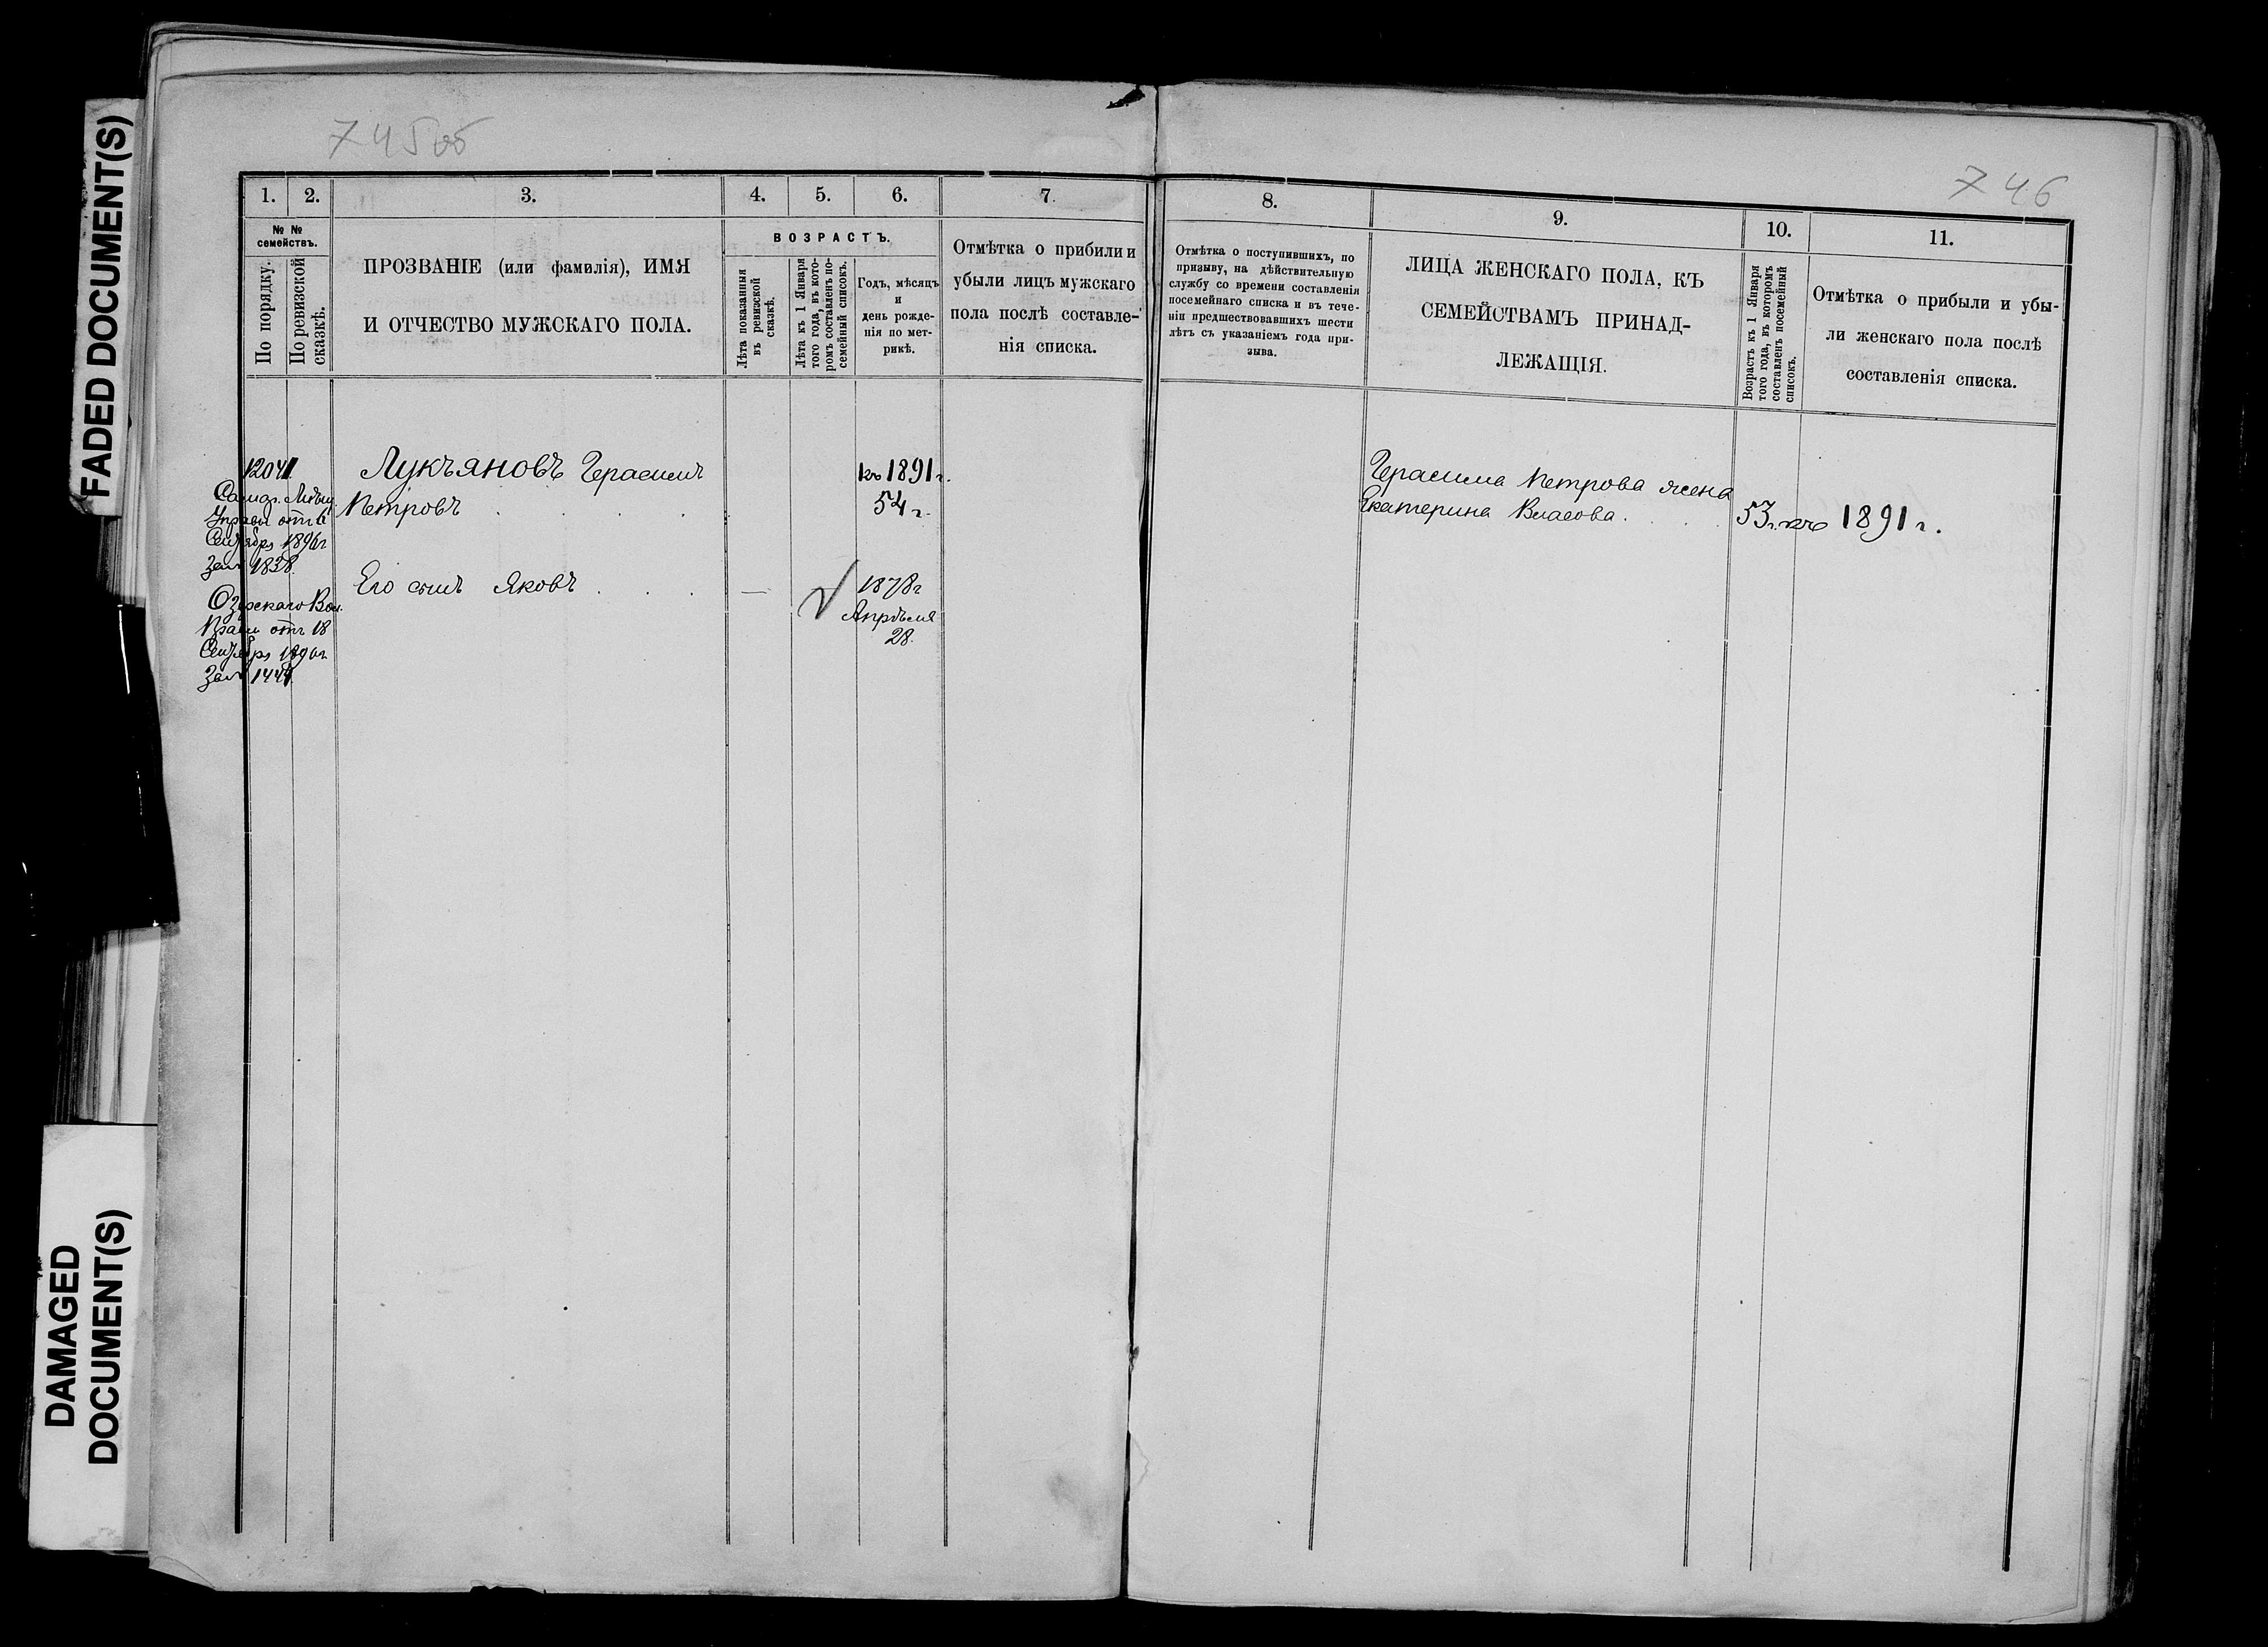 FADED DOCUMENT(S)
DAMAGED
DOCUMENT(S)
745об
746
1. 2. 3. 4. 5. 6. 7.
№ №
семействъ.
По порядку.
По ревизской
сказкѣ.
ПРОЗВАНІЕ (или фамилія), ИМЯ
И ОТЧЕСТВО МУЖСКАГО ПОЛА.
ВОЗРАСТЪ.
Лѣта показанныя
въ ревизской
сказкѣ.
Лѣта къ 1 Января
того года, въ кото-
ромъ составленъ по-
семейный списокъ.
Годъ, мѣсяцъ
и
день рожде-
нія по мет-
рикѣ.
Отмѣтка о прибыли и
убыли лицъ мужскаго
пола послѣ составле-
нія списка.
8. 9. 10. 11.
Отмѣтка о поступившихъ, по
призыву, на дѣйствительную
службу со времени составленія
посемейнаго списка и въ тече-
ніи предшествовавшихъ шести
лѣтъ съ указаніемъ года при-
зыва.
ЛИЦА ЖЕНСКАГО ПОЛА, КЪ
СЕМЕЙСТВАМЪ ПРИНАД-
ЛЕЖАЩІЯ.
Возрастъ къ 1 Января
того года, въ которомъ
составленъ посемейный
списокъ.
Отмѣтка о прибыли и убы-
ли женскаго пола послѣ
составленія списка.
12041
Управы отъ 6
Сентября 1896г
за № 1838
Озерскаго Вол.
Правл отъ 18
Сентября 1896г
за № 1444
Лукъяновъ Герасимъ
Петровъ
къ 1891г.
54г.
Его сынъ Яковъ
—
1878г
Апрѣля
28
Герасима Петрова жена
Екатерина Власова
53г. къ 1891г.